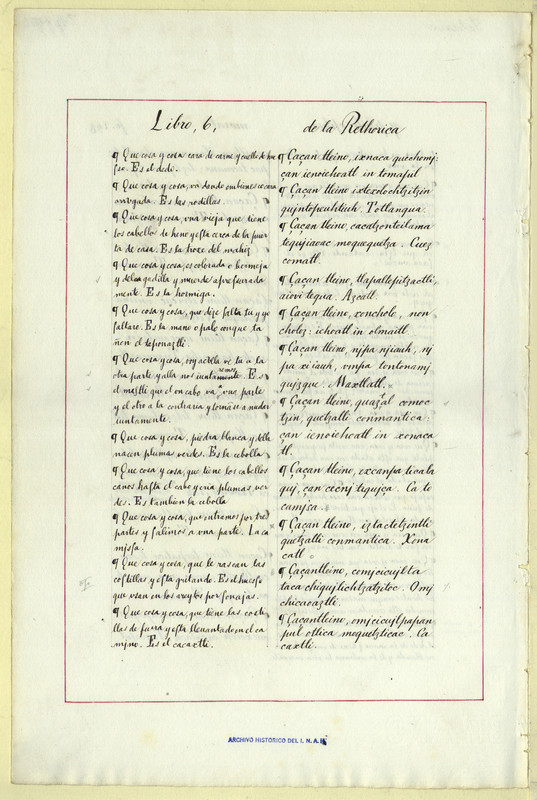 Libro, 6,
¶ Que cosa y cosa casa de carne y cuello de hue
sso. Es el dedo.
¶ Que cosa y cosa, va donde
arrugada. Es las rodillas
¶ Que cosa y cosa, vna vieja que tiene
los cabellos de heno y esta cerca de la puer
ta de casa. Es la troxe del mahiz
¶ Que cosa y cosa, es colorada o bermeja
y delagadilla y muerde apresurada
mente. Es la hormiga.
¶ Que cosa y cosa, que dize salta tu y yo
saltare. Es la mano o palo conque ta
ñen el teponaztli.
¶ Que cosa y cosa, voy aculla ve tu a la
otra parte y alla nos
Es
el mastli que el vn cabo va a vna parte
y el otro a la contraria y tornase a
iuntamente.
¶ Que cosa y cosa, piedra blanca y della
nacen plumas verdes. Es la cebolla
¶ Que cosa y cosa, que tiene los cabellos
canos hasta el cabo y cria plumas ver
des. Es tambien la cebolla
¶ Que cosa y cosa, que entramos por tres
partes y salimos a vna parte. La ca
misa.
¶ Que cosa y cosa, que te rascan las
costillas y esta gritando. Es el huesso
que vsan en los areytos por sonajas.
¶ Que cosa y cosa, que tiene las costi
llas de fuera y esta lleuantado en el ca
mino. Es el cacaxtli.
de la Rethorica
¶ Çaçan tleino, ixnaca quechomj:
çan icnoichoatl in tomapil
¶ Çaçan tleino ixtexolochtzitzin
Totlanqua.
¶ Çaçan tleino, cacatzonteilama
tequijaoac moquequetza. Cuez
comatl.
¶ Çaçan tleino, tlapaltepitzactli,
aiovi tequa. Azcatl.
¶ Çaçan tleino, xoncholo, non
choloz: ichoatl in olmaitl.
¶ Çaçan tleino, njpa njiauh, nj
pa xiiauh, vmpa tontonamj
quizque. Maxtlatl.
¶ Çaçan tleino,
tzin, quetzalli conmantica:
çan icnoichoatl in xonaca
tl.
¶ Çaçan tleino, excanpa ticala
quj, çan cecnj tiqujça. Ca to
camjsa.
¶ Çaçan tleino, iztactetzintli
quetzalli conmantica. Xona
catl
¶ Çaçantleino, omjcicujlta
taca chiqujlichtzatzitoc. Omj
chicaoaztli.
¶ Çaçantleino, omjcicujlpapan
pul ottica moquetzticac. Ca
caxtli.
ARCHIVO HISTORICO DEL I. N. A. H.